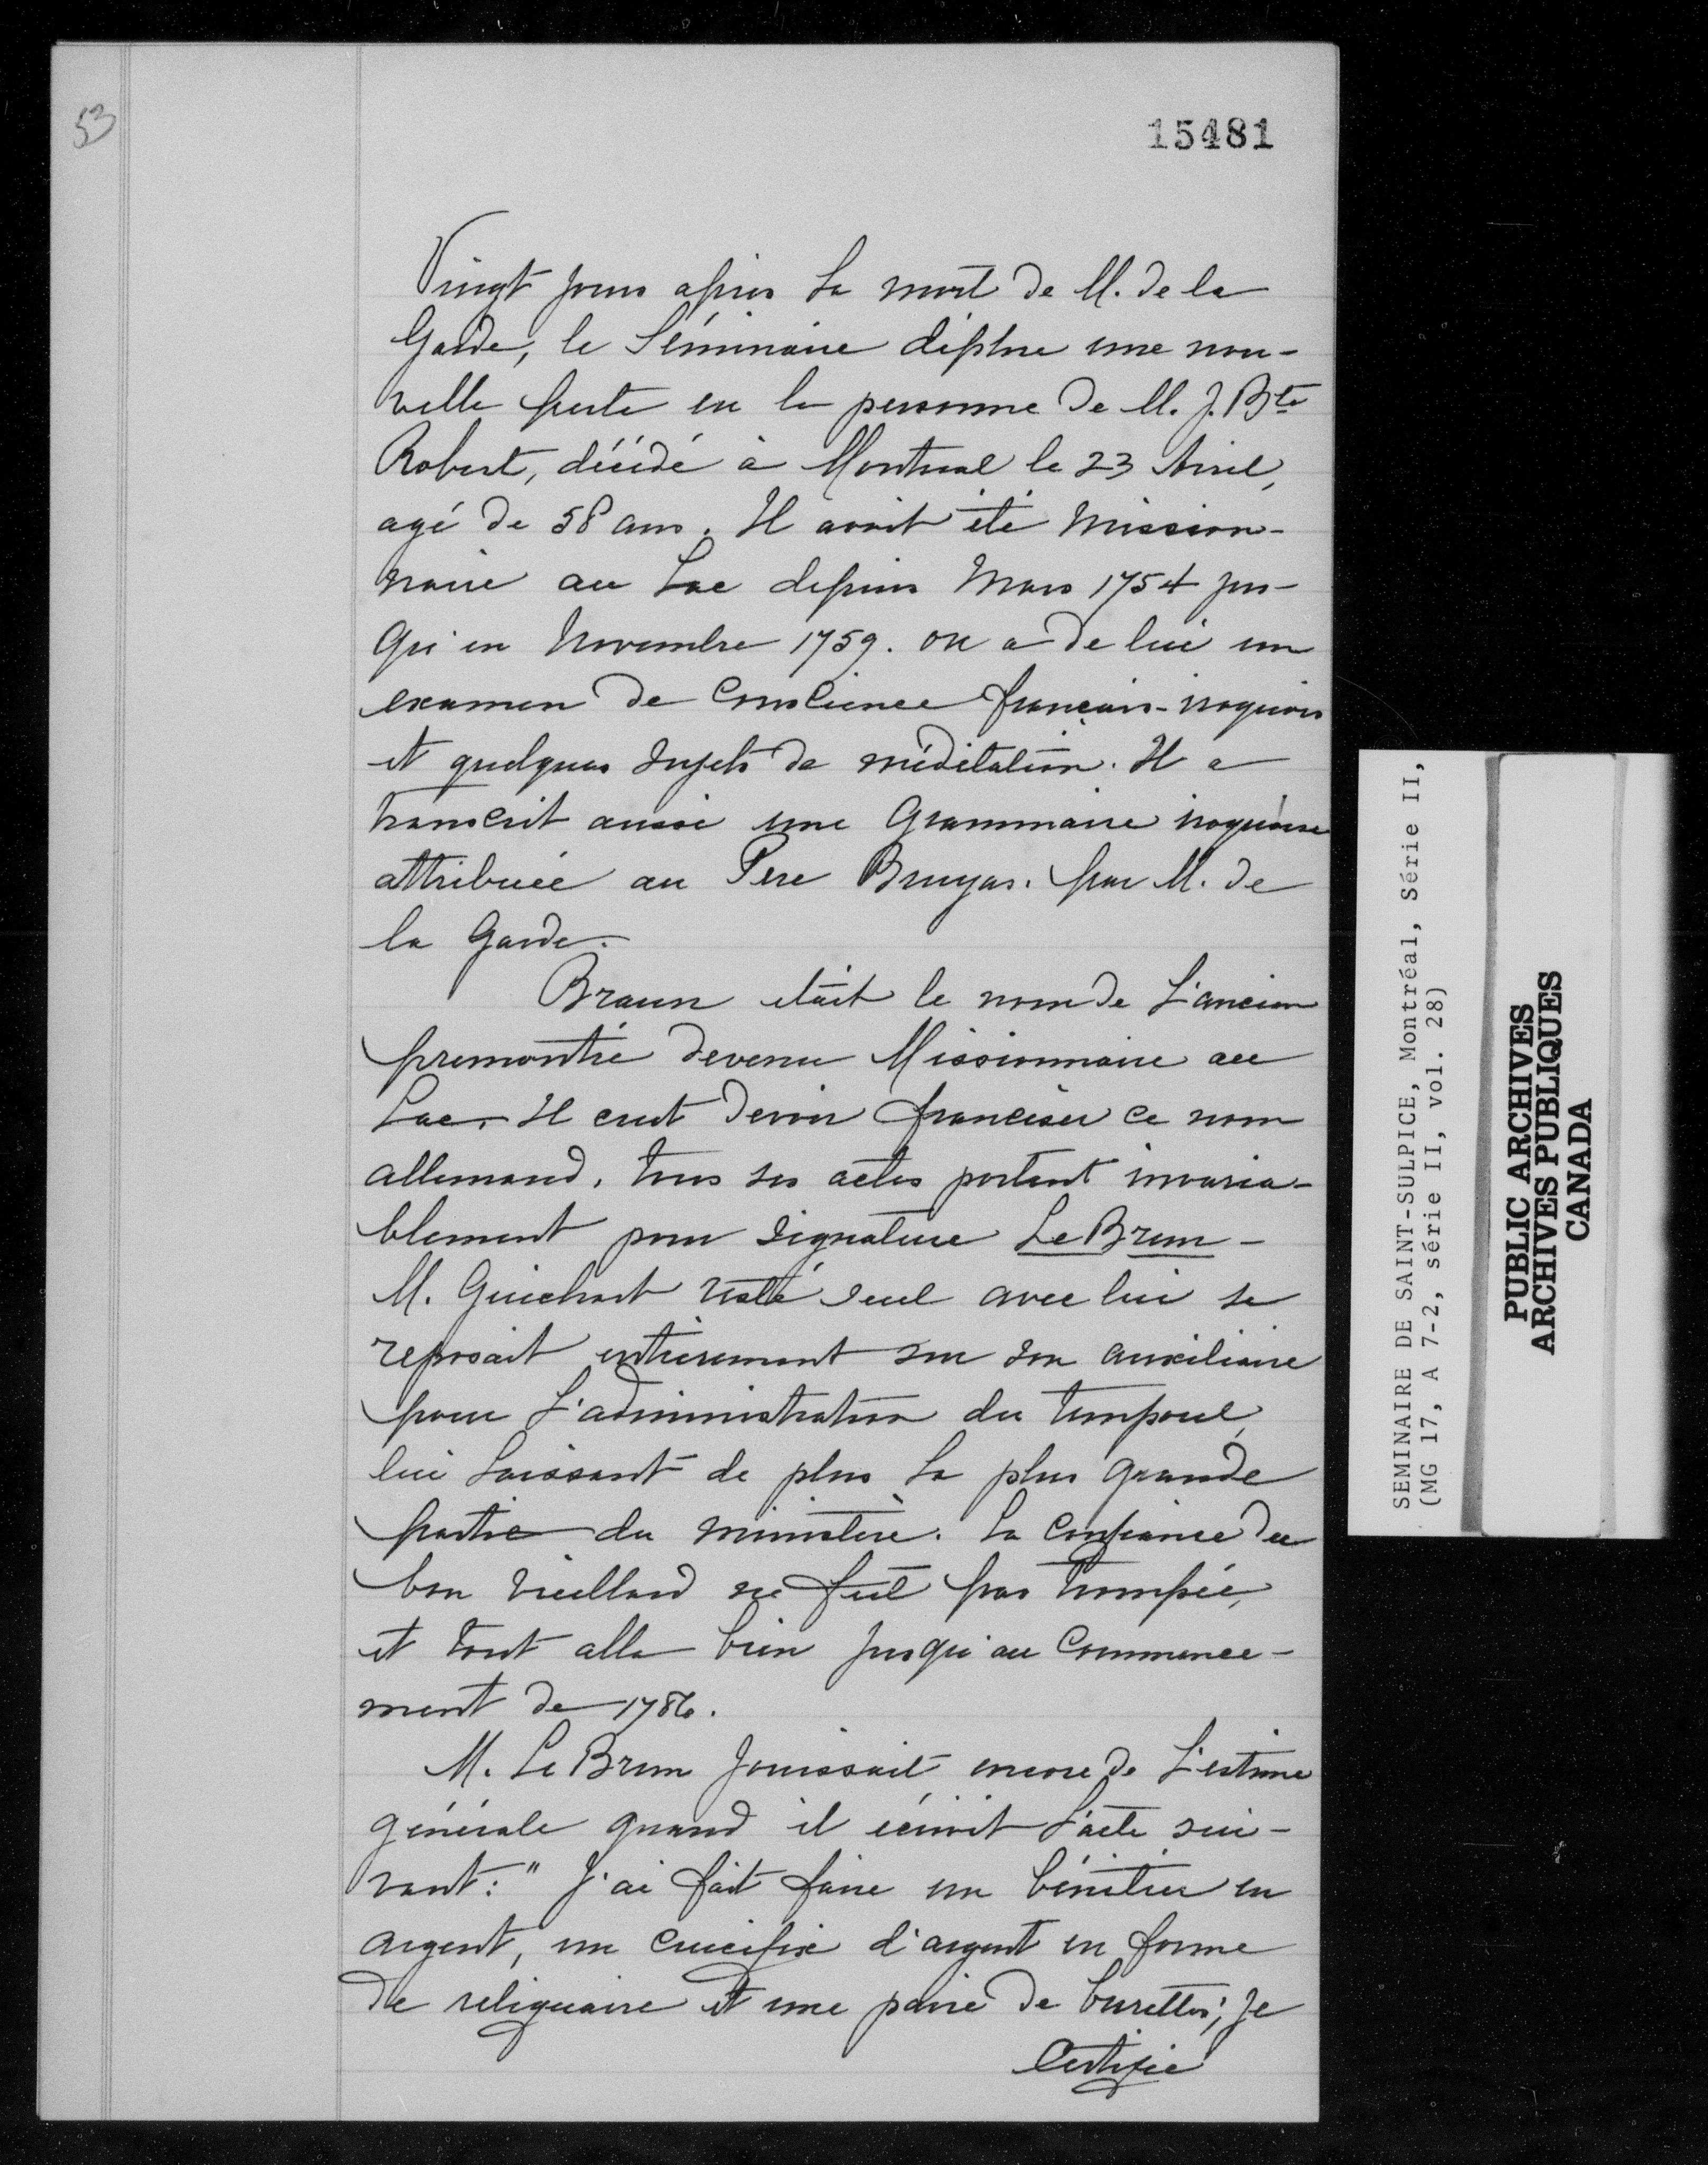 53
15481
Vingt jours après la mort de M. de la
Garde, le Séminaire déplore une nou-
velle perte en la personne de M. J. Bte
Robert, décédé à Montreal le 23 Avril,
agé de 58 ans. Il avait été Mission-
naire au Lac depuis Mars 1754 jus-
qu'en Novembre 1759. On a de lui un
examen de Conscience français-iroquois
et quelques sujets de méditation. Il a
transcrit aussi une Grammaire iroquoise
attribuée au Père Bruyas. par M. de
la Garde.
Braun était le nom de l'ancien
premontré devenu Missionnaire au
Lac. Il crut devoir franciser ce nom
allemand. Tous ses actes portent invaria-
blement pour signature Le Brun -
M. Guichart resté seul avec lui se
reposait entièrement sur son auxiliaire
pour l'administration du temporel,
lui laissant de plus la plus grande
partie du ministère. La Confiance du
bon vieillard ne fut pas trompée,
et tout alla bien jusqu'au Commence-
ment de 1786.
M. Le Brun Jouissait encore de l'estime
générale quand il écrivit l'acte sui-
vant: " J'ai fait faire un bénitier en
argent, un Crucifix d'argent en forme
de reliquaire et une paire de burettes; Je
Certifie
SEMINAIRE DE SAINT-SULPICE, Montréal, Série II,
(MG 17, A 7-2, série II, vol. 28)
PUBLIC ARCHIVES
ARCHIVES PUBLIQUES
CANADA